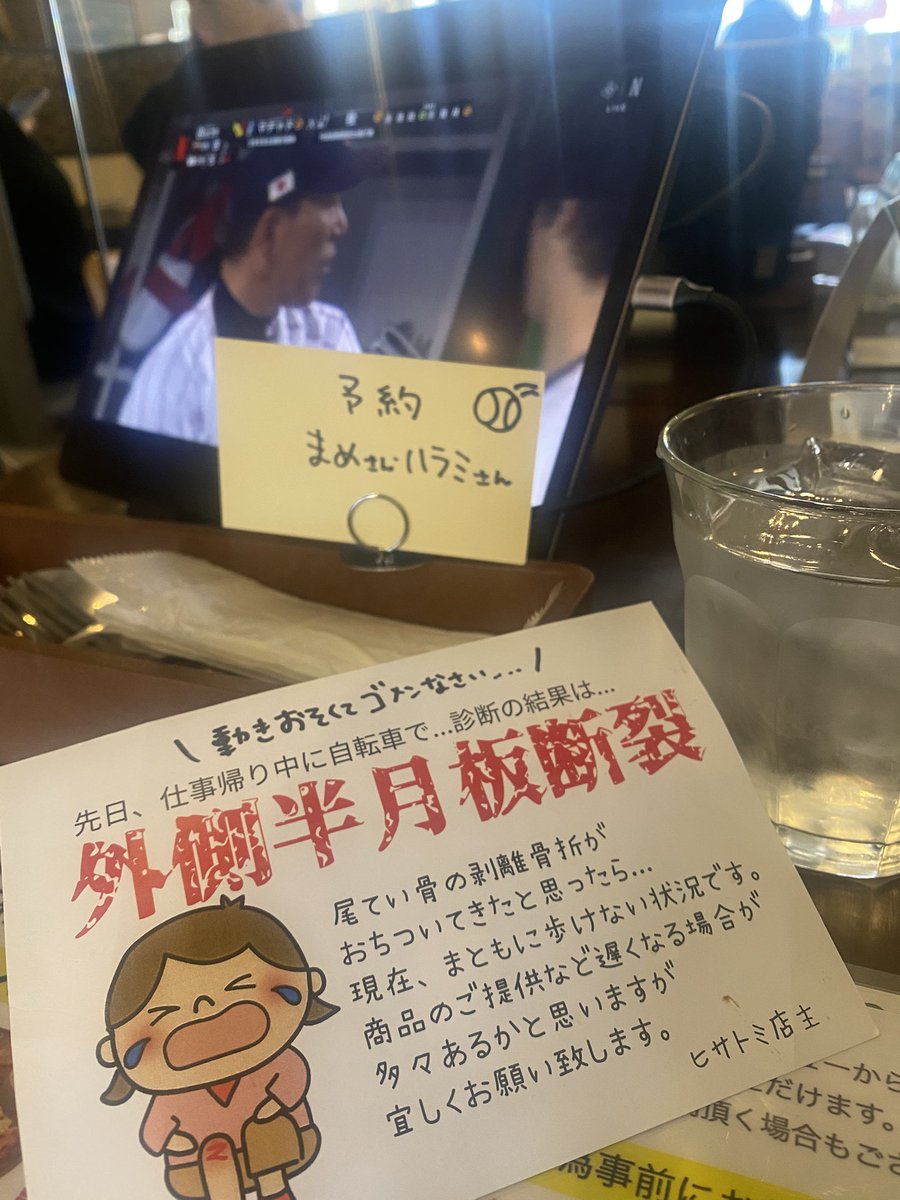 LIVE
予約
まめさん・ハラミさん
\ 動きおそくてゴメンなさい... /
先日、仕事帰り中に自転車で...診断の結果は...
外側半月板断裂
尾てい骨の剥離骨折が
おちついてきたと思ったら...
現在、まともに歩けない状況です。
商品のご提供など遅くなる場合が
多々あるかと思いますが
宜しくお願い致します。
ヒサトミ店主
ューから
ただけます。
頂く場合もござ
為事前にお